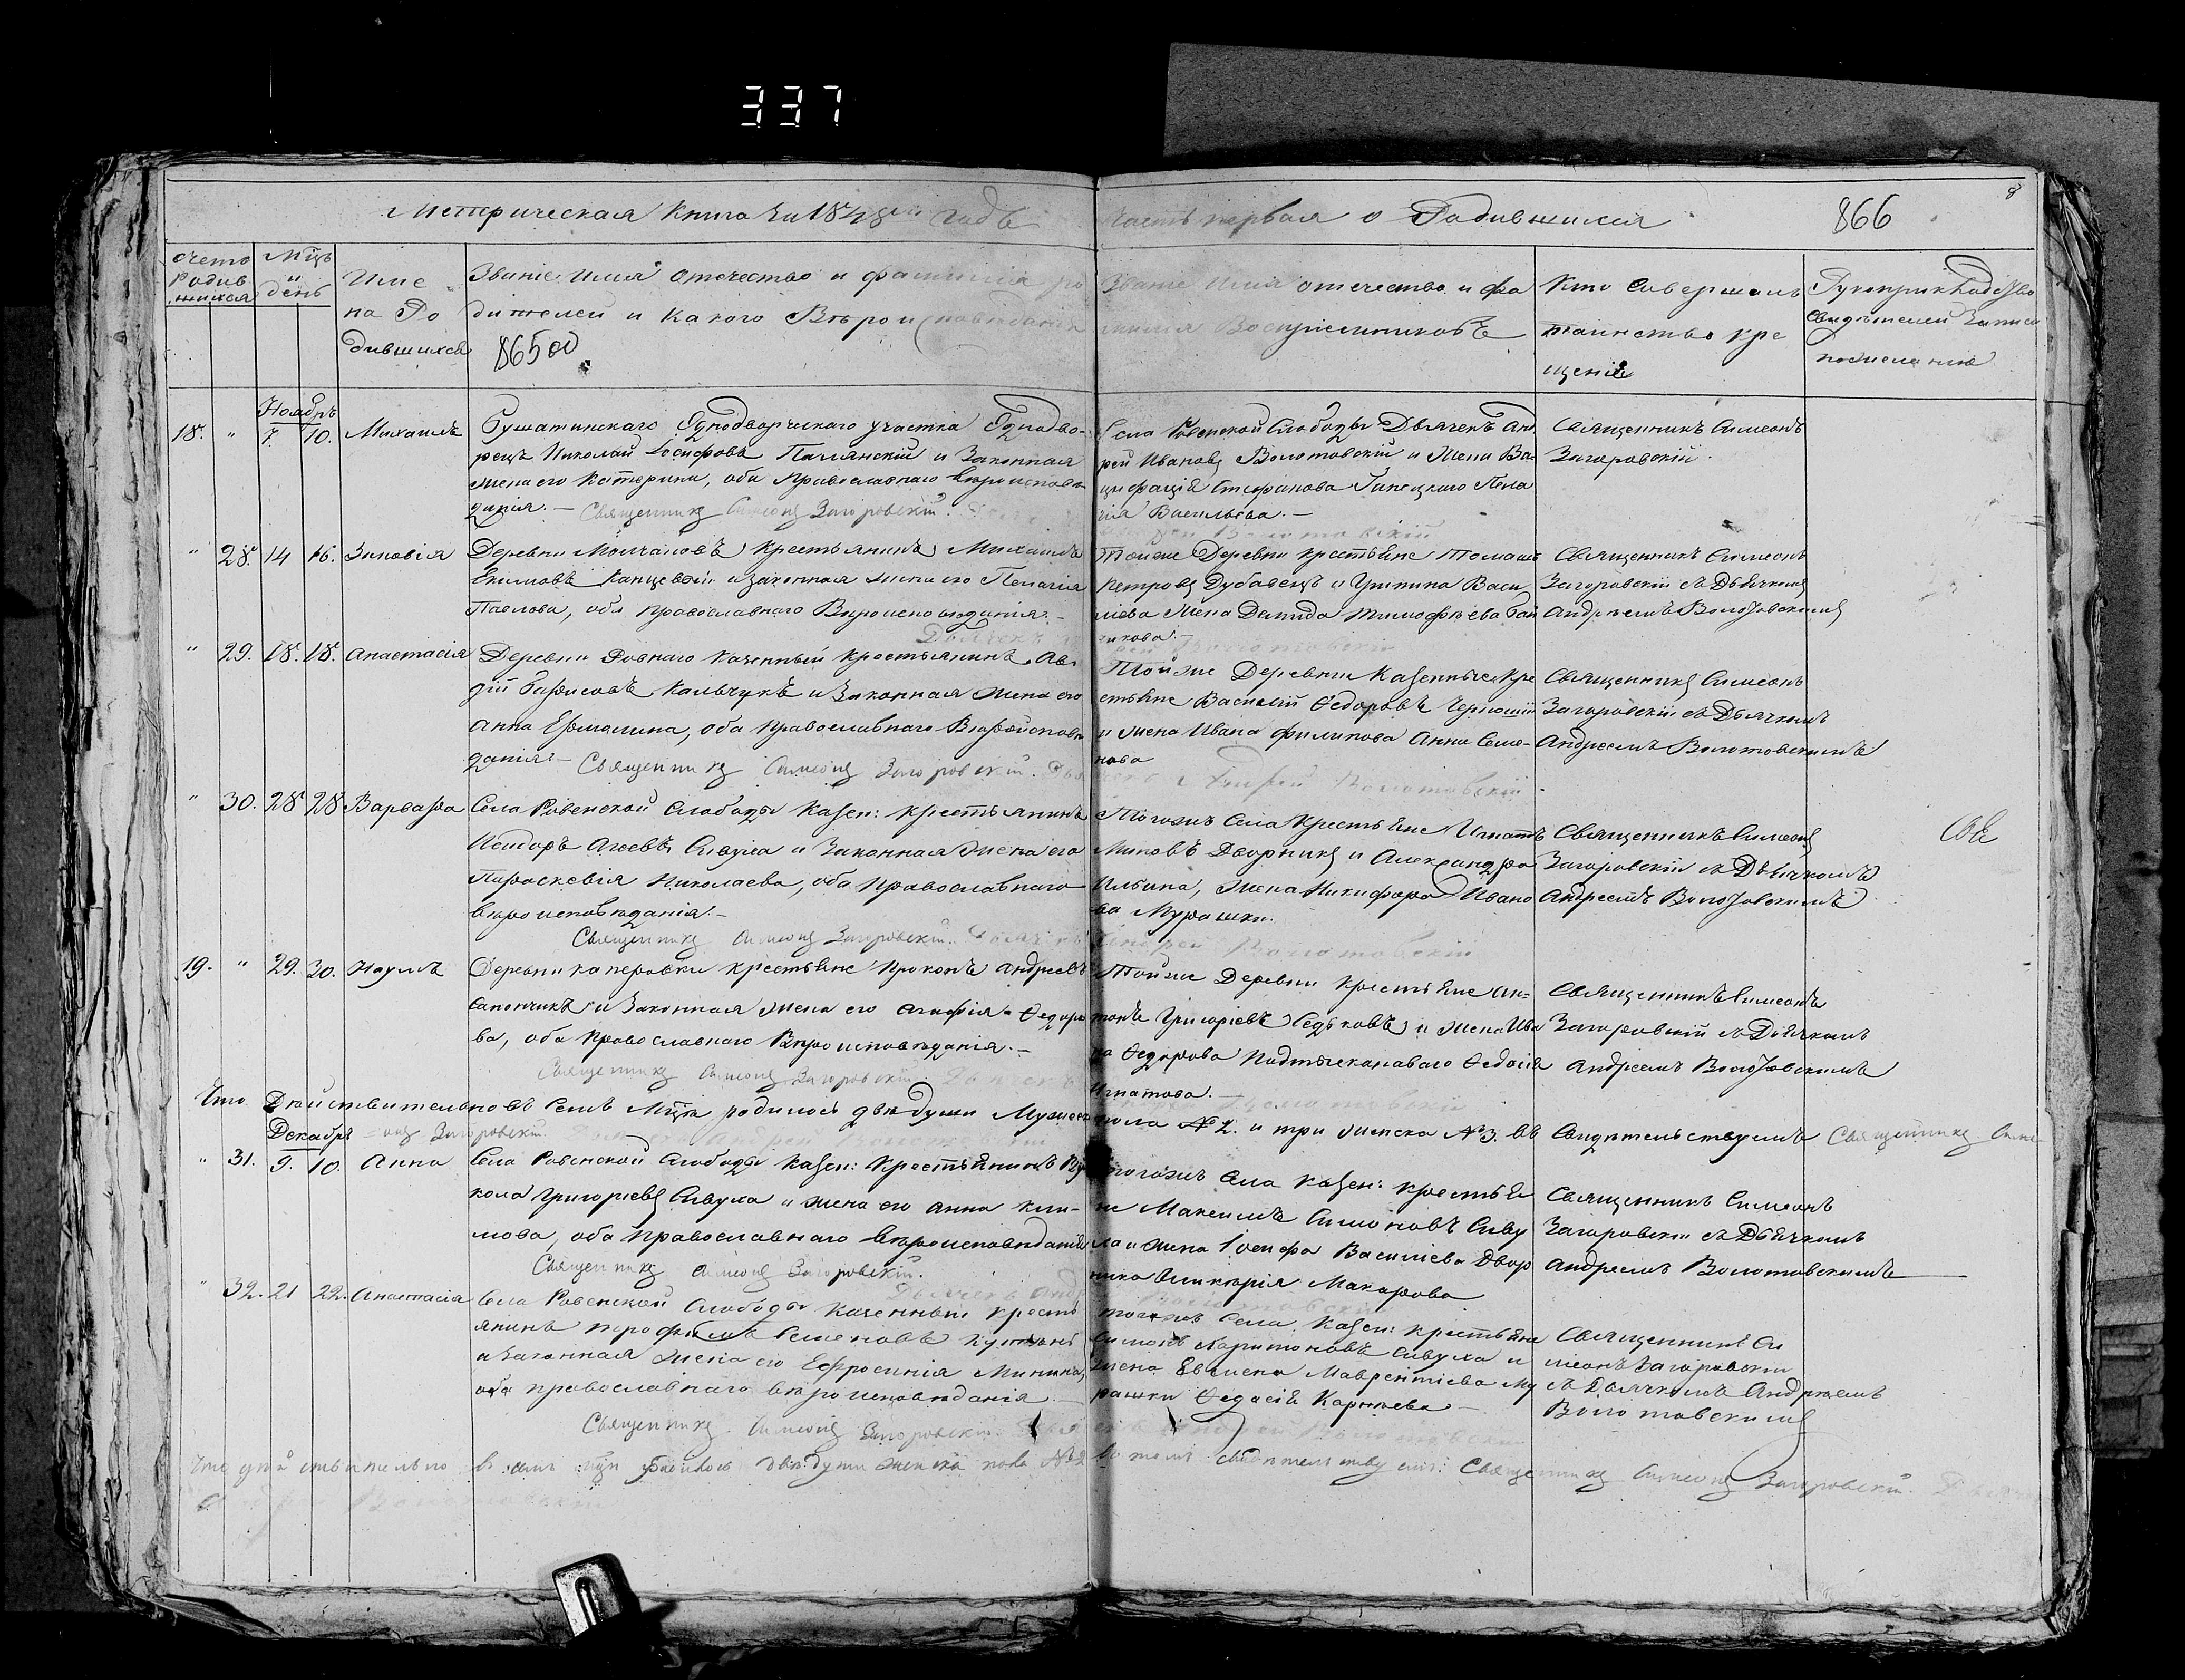 337
Метрическая Книга за 1848й годъ
Часть первая о Родившихся
866
8
счетъ родившихся
Мцъ и день
Имена Родившихся
Званіе имя отечество и фамилія родителей и Какого Вѣроисповѣданія
86500
Званіе Имя отечество и фамилія Воспріемниковъ
Кто Совершалъ таинство крещенія
Рукоприкладство Свидѣтелей Записи по желанію
Ноябрь
18. " 7. 10. Михаилъ
Однодворческаго участка Одново-
рецъ Николай Іосифовъ и Законная
жена его Катерина, оба Православнаго вѣроисповѣ-
данія. — Священникъ Симеонъ Загоровскій.
Села Ровенской Слободы Дьячекъ Анд
рей Ивановъ Волотовскій и Жена
Стефанова Пела
гія Васильева. —
Священникъ Симеонъ
Загоровскій.
" 28. 14 16. Зиновія
Деревни Молчановъ Крестьянинъ Михаилъ
Екимовъ и законная жена его Пелагія
Павлова, оба православнаго Вѣроисповѣданія. —
Тойже Деревни крестьяне Томашъ
Петровъ Дубавецъ и Васи
лиева Жена Демида Тимофѣева
Священникъ Симеонъ
Загоровскій съ Дьячкомъ
Андреемъ Волотовскимъ
" 29. 18. 18. Анастасія
Деревни Ровнаго Казенный крестьянинъ Ав-
дій Борисовъ Кальчукъ и Законная жена его
Анна Ермолина, оба православнаго Вѣроисповѣ
данія. — Священникъ Симеонъ Загоровскій.
Тойже Деревни Казенные Кре
стьяне Василій Ѳедоровъ
и жена Ивана Филипова Анна Семе-
нова
Андрей Волотовскій
Священникъ Симеонъ
Загоровскій съ Дьячкомъ
Андреемъ Волотовскимъ
" 30. 28 28 Варвара
Села Ровенской Слободы Казен: Крестьянинъ
Исидоръ Агеевъ Сивуха и Законная Жена его
Параскевія Николаева, оба Православнаго
вѣроисповѣданія. —
Священникъ Симеонъ Загоровскій.
Тогожъ Села Крестьяне Игнатъ
Миновъ Дворникъ и Александра
Ильина, жена Никифора Ивано
ва Мурашки.
Андрей Волотовскій
Священникъ Симеонъ
Загоровскій съ Дьячкомъ
Андреемъ Волотовскимъ
19. " 29. 30. Наумъ
Деревни Каперовки крестьяне Прокопъ Андреевъ
Сапончикъ и Законная жена его Агафія Ѳедоро
ва, оба православнаго Вѣроисповѣданія. —
Священникъ Симеонъ Загоровскій.
Тойже Деревни Крестьяне Ан-
тонъ Григоріевъ Седьковъ и жена Ива
на Ѳедорова Ѳедосія
Игнатова. —
Священникъ Симеонъ
Загоровскій съ Дьячкомъ
Андреемъ Волотовскимъ
Что Дѣйствительно въ Семъ Мцѣ родилось двѣ души Мужеска пола № 2. и три женска № 3. въ Свидѣтельствуемъ Священникъ Симе-
онъ Загоровскій.
Декабрь
" 31. 9. 10. Анна
Села Ровенской Слободы Казен: Крестьянинъ Ву
кола Григоріевъ Сивуха и жена его Анна Кли-
мова, оба православнаго вѣроисповѣданія
Священникъ Симеонъ Загоровскій.
тогожъ Села Казен: крестья
не Максимъ Симоновъ Сиву
ха и жена Іосифа Василіева Двор
ника Гликерія Макарова
Священникъ Симеонъ
Загоровскій съ Дьячкомъ
Андреемъ Волотовскимъ
" 32. 21 22. Анастасія
Села Ровенской Слободы Казенный кресть
янинъ Семеновъ
и Законная жена его Ефросинія Минина,
оба православнаго вѣроисповѣданія —
Священникъ Симеонъ Загоровскій.
тогожъ Села Казен: крестьяне
Симонъ Харитоновъ Сивуха и
жена Евсмена Маврентіева Му
рашки Ѳедосія Карпѣева —
Священникъ Си
меонъ Загоровскій
съ Дьячкомъ Андреемъ
Волотовскимъ
Что дѣйствительно въ семъ мцѣ родилось двѣ души женска пола № 2 въ томъ свидѣтельствуемъ: Священникъ Симеонъ Загоровскій.